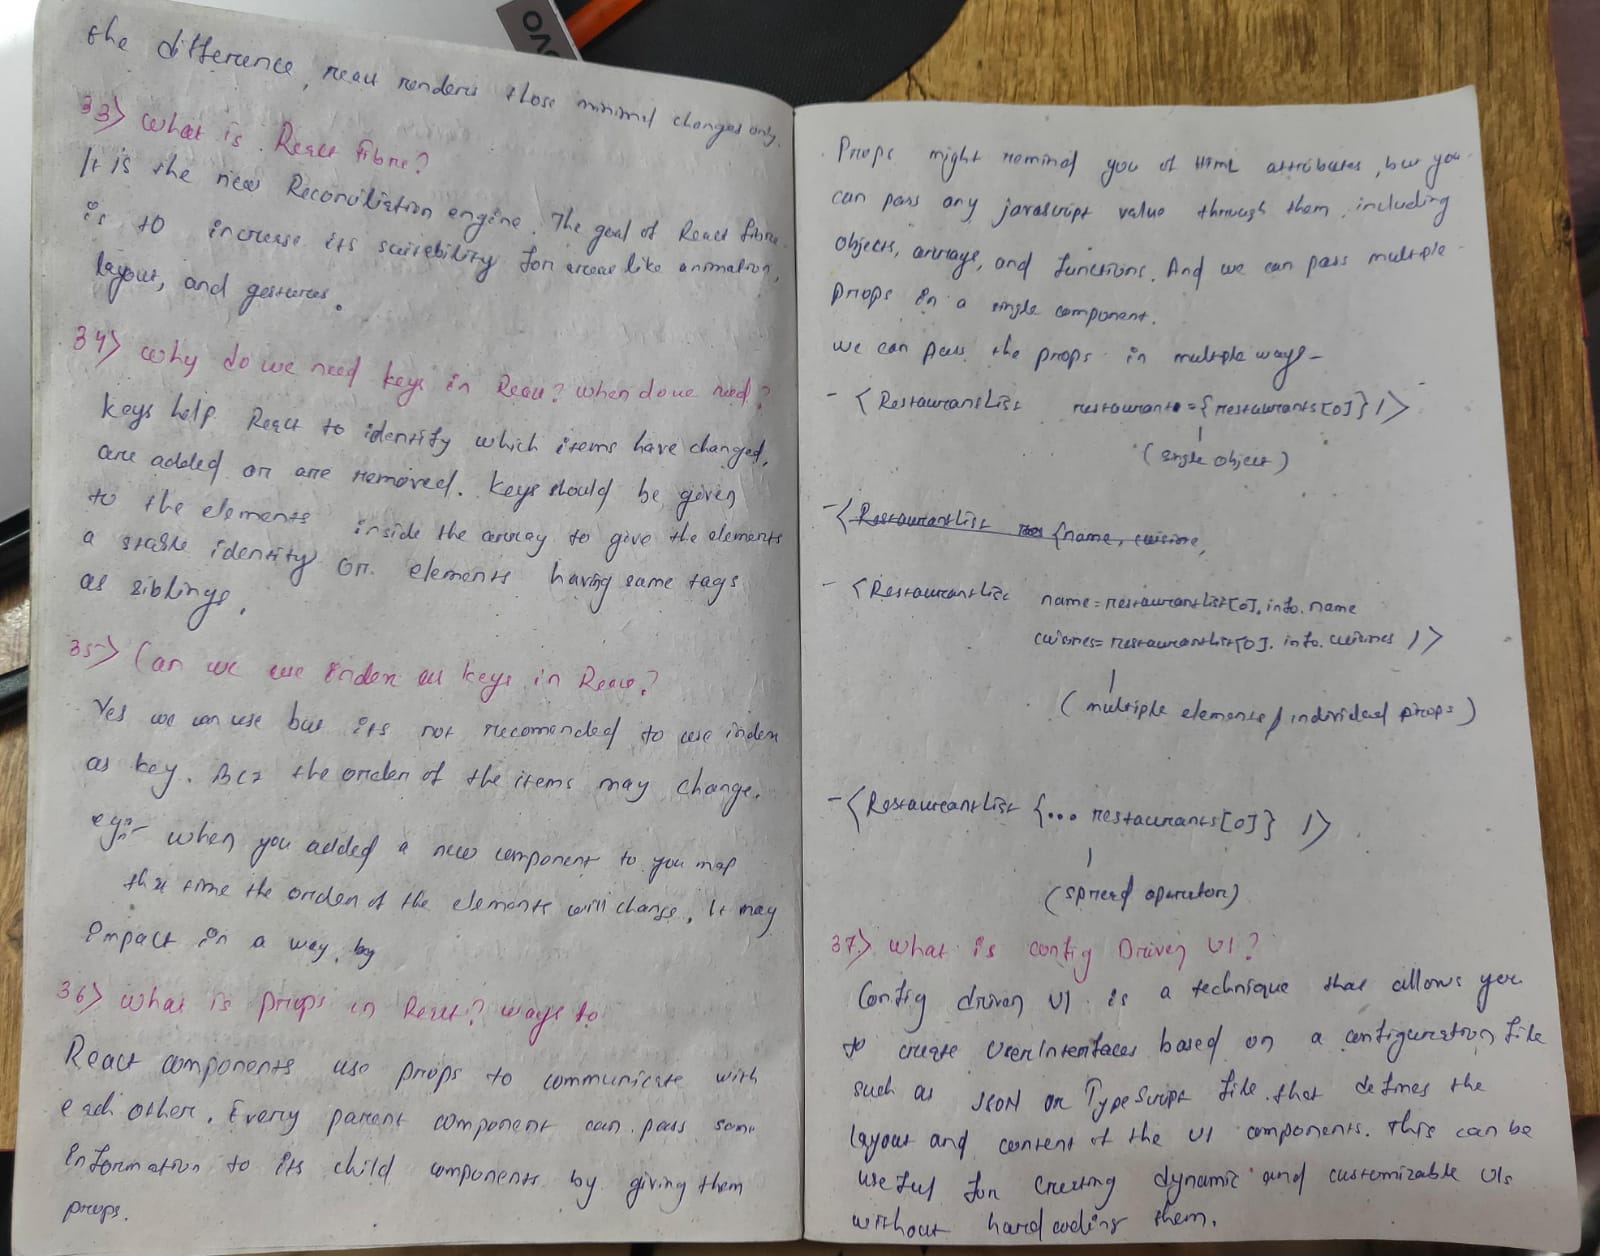 the difference, react renders those minimal changes only.
33) What is React Fibre?
It is the new Reconciliation engine. The goal of React fibre
is to increase its suitability for areas like animation,
layout, and gestures.
34) Why do we need keys in React? when do we need?
Keys help React to identify which items have changed,
are added or are removed. Keys should be given
to the elements inside the array to give the elements
a stable identity or elements having same tags
as siblings.
35) Can we use index as keys in React?
Yes we can use but its not recomended to use index
as key. Bcz the order of the items may change.
eg:- when you added a new component to you map
that time the order of the elements will change. It may
impact in a way, by
36) What is props in React? ways to
React components use props to communicate with
each other. Every parent component can pass some
information to its child components by giving them
props.
Props might remind you of HTML attributes, but you
can pass any javascript value through them, including
objects, arrays, and functions. And we can pass multiple
props in a single component.
we can pass the props in multiple ways -
- <RestaurantList restaurant={restaurants[0]} />
(single object)
- <RestaurantList {name, cuisine,
- <RestaurantList name=restaurantList[0].info.name
cuisines=restaurantList[0].info.cuisines />
(multiple elements / individual props)
- <RestaurantList {... restaurants[0]} />
(spread operator)
37) What is config Driven UI?
Config driven UI is a technique that allows you
to create User Interfaces based on a configuration file
such as JSON or TypeScript file that defines the
layout and content of the UI components. This can be
useful for creating dynamic and customizable UIs
without hard coding them.
OVO